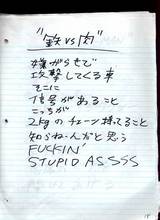 "鉄 vs 肉"
嫌がらせで
攻撃してくる車
そこに
信号があること
こっちが
2kgのチェーン持ってること
知らねーんだと思う
FUCKIN'
STUPID ASSSS